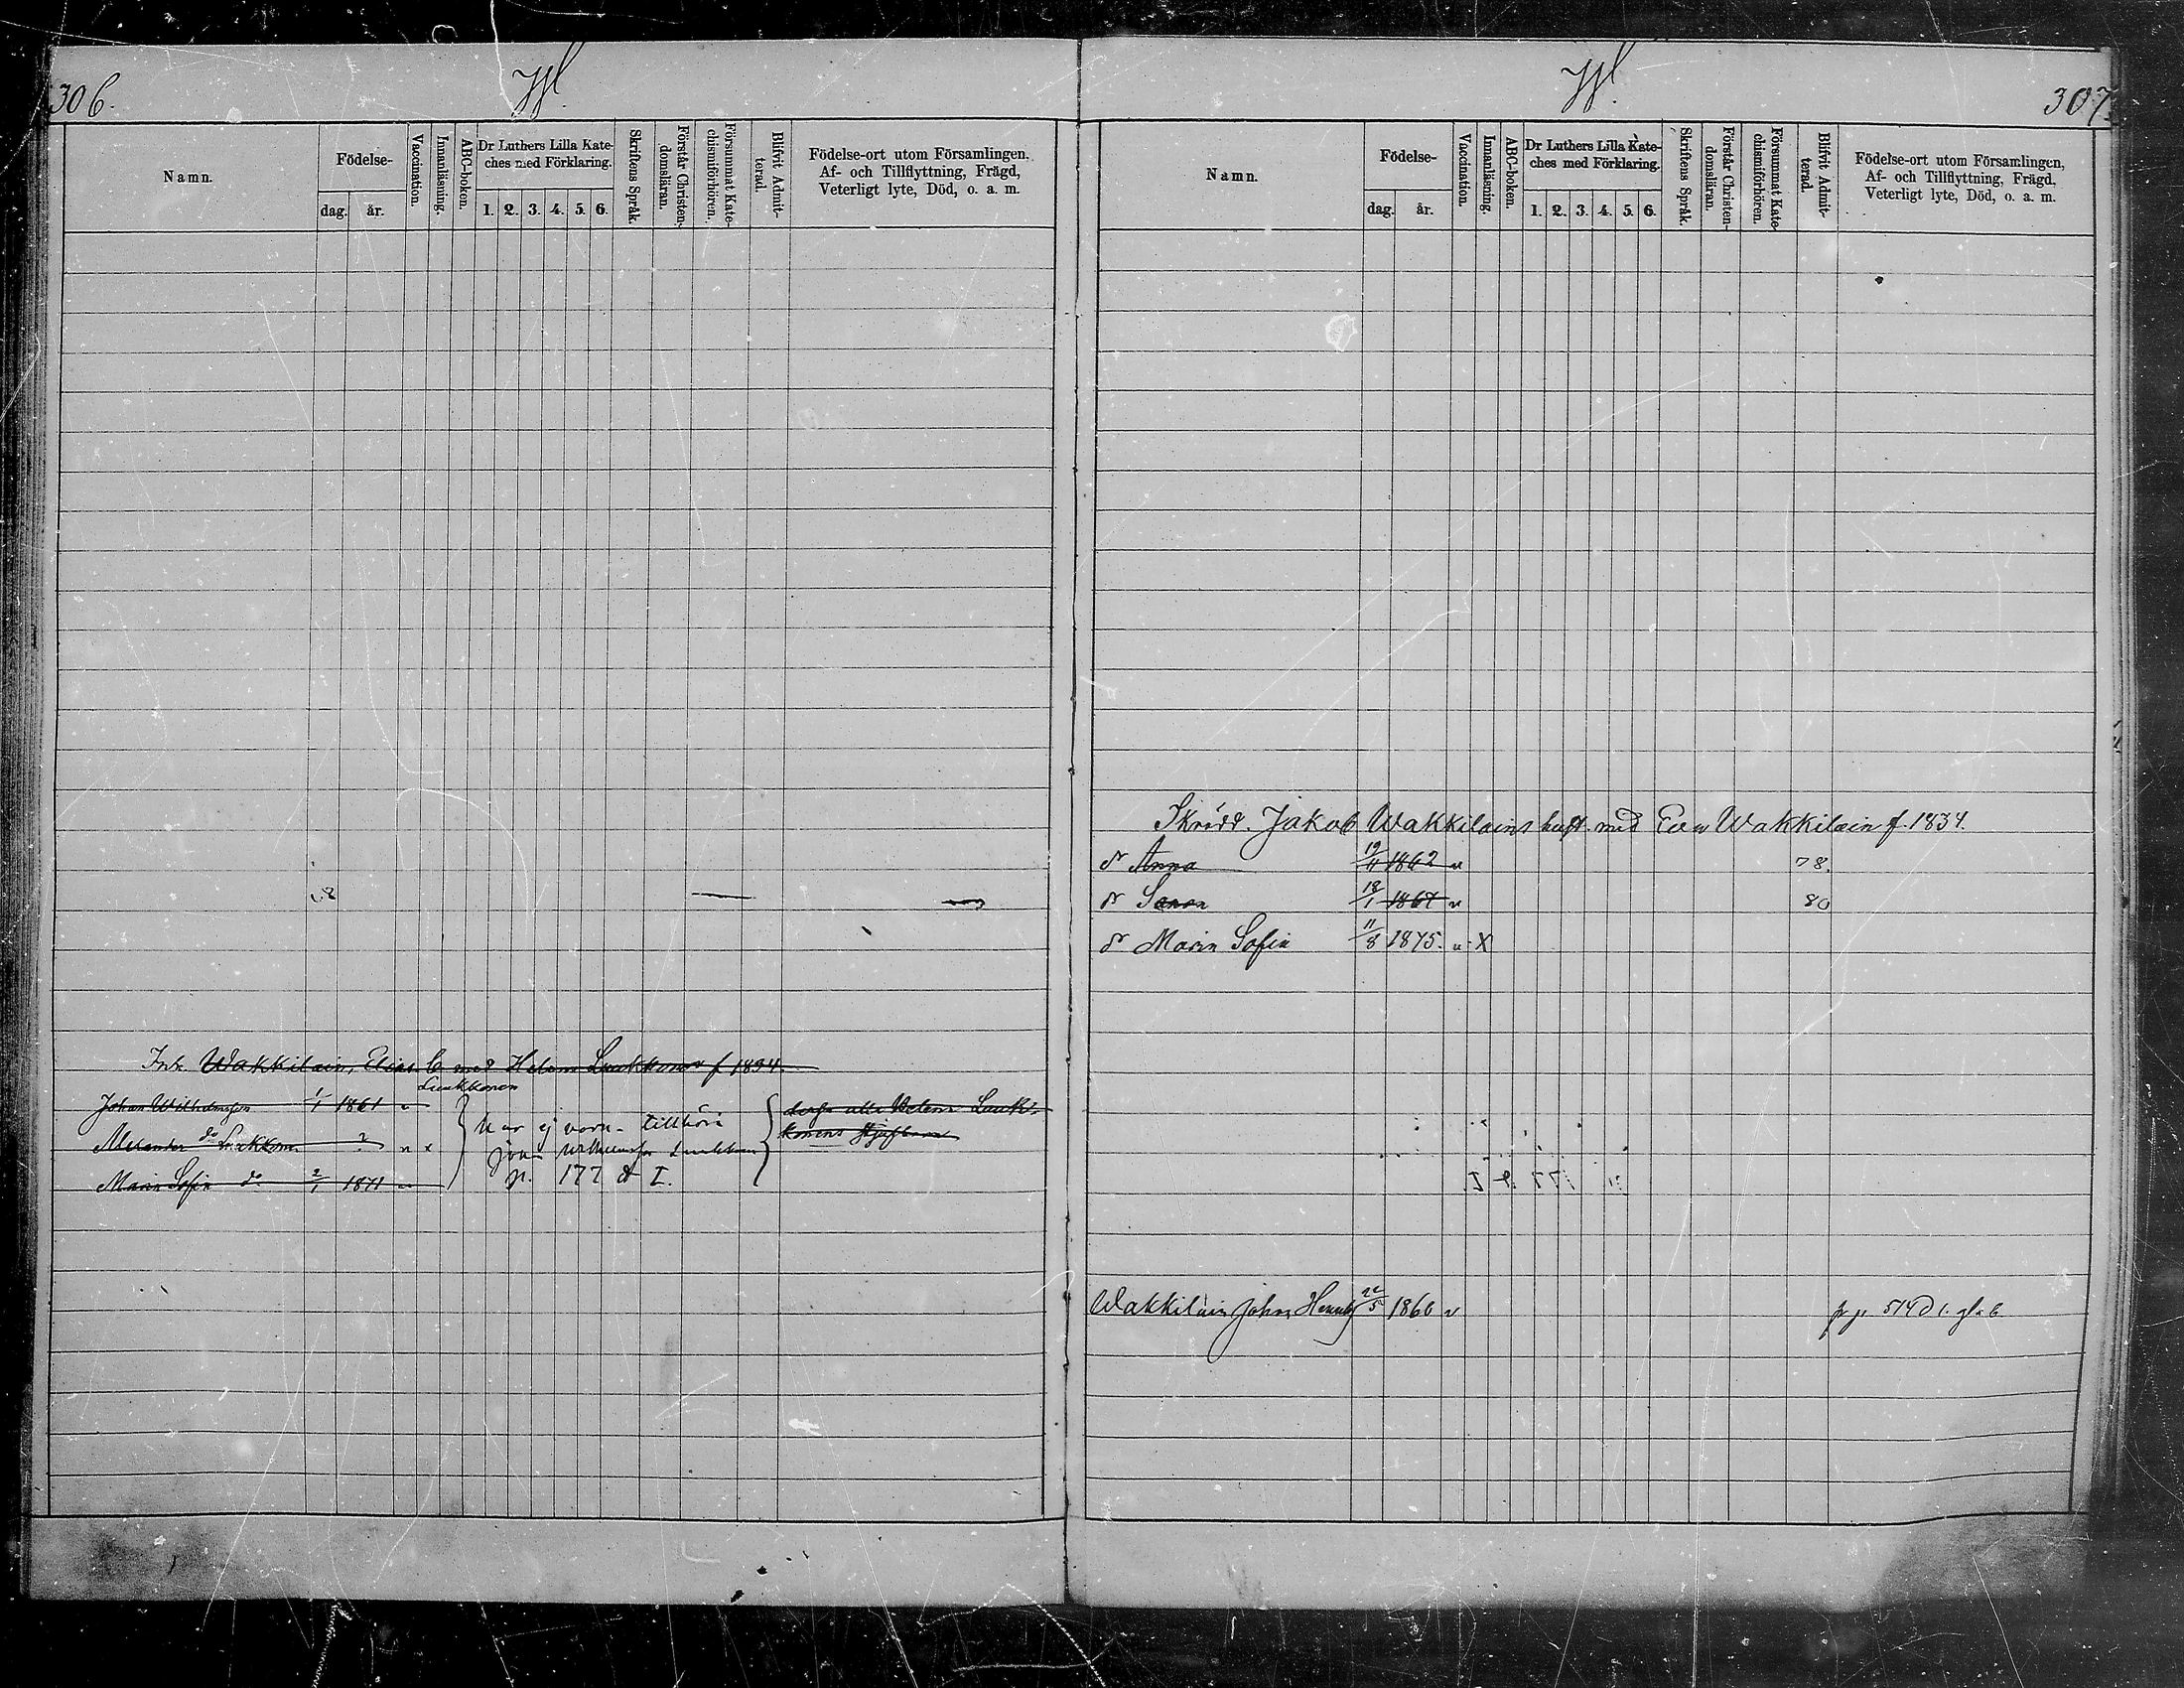 306.
W.
Namn.
Födelse-
dag.
år.
Vaccination.
Innanläsning.
ABC-boken.
Dr Luthers Lilla Kate-
ches med Förklaring.
1. 2. 3. 4. 5. 6.
Skriftens Språk.
Förstår Christen-
domsläran.
Försummat Kate-
chismiförhören.
Blifvit Admit-
terad.
Födelse-ort utom Församlingen.
Af- och Tillflyttning, Frägd,
Veterligt lyte, Död, o. a. m.
Inh. Wakkilain, Elias b. med Helena Luukkonen f 1834.
Luukkonen
Johan Wilhelmsson 1/1 1861 v
do Luukkonen ? v x
Maria Sofia do 2/1 1871 v
ej vara tillhöra
Wilhelmsson Luukkonen
p. 177 d I.
alla Helena Luuk-
konens
307.
W.
Namn.
Födelse-
dag.
år.
Vaccination.
Innanläsning.
ABC-boken.
Dr Luthers Lilla Kate-
ches med Förklaring.
1. 2. 3. 4. 5. 6.
Skriftens Språk.
Förstår Christen-
domsläran.
Försummat Kate-
chismiförhören.
Blifvit Admit-
terad.
Födelse-ort utom Församlingen,
Af- och Tillflyttning, Frägd,
Veterligt lyte, Död, o. a. m.
Skrädd. Jakob Wakkilains huft. med Eva Wakkilain f. 1834.
dr Anna 19/11 1862 v 78.
dr Sanna 18/1 1867 v 80
dr Maria Sofia 11/8 1875. v X
Wakkilain Johan Henrik 22/5 1860 v